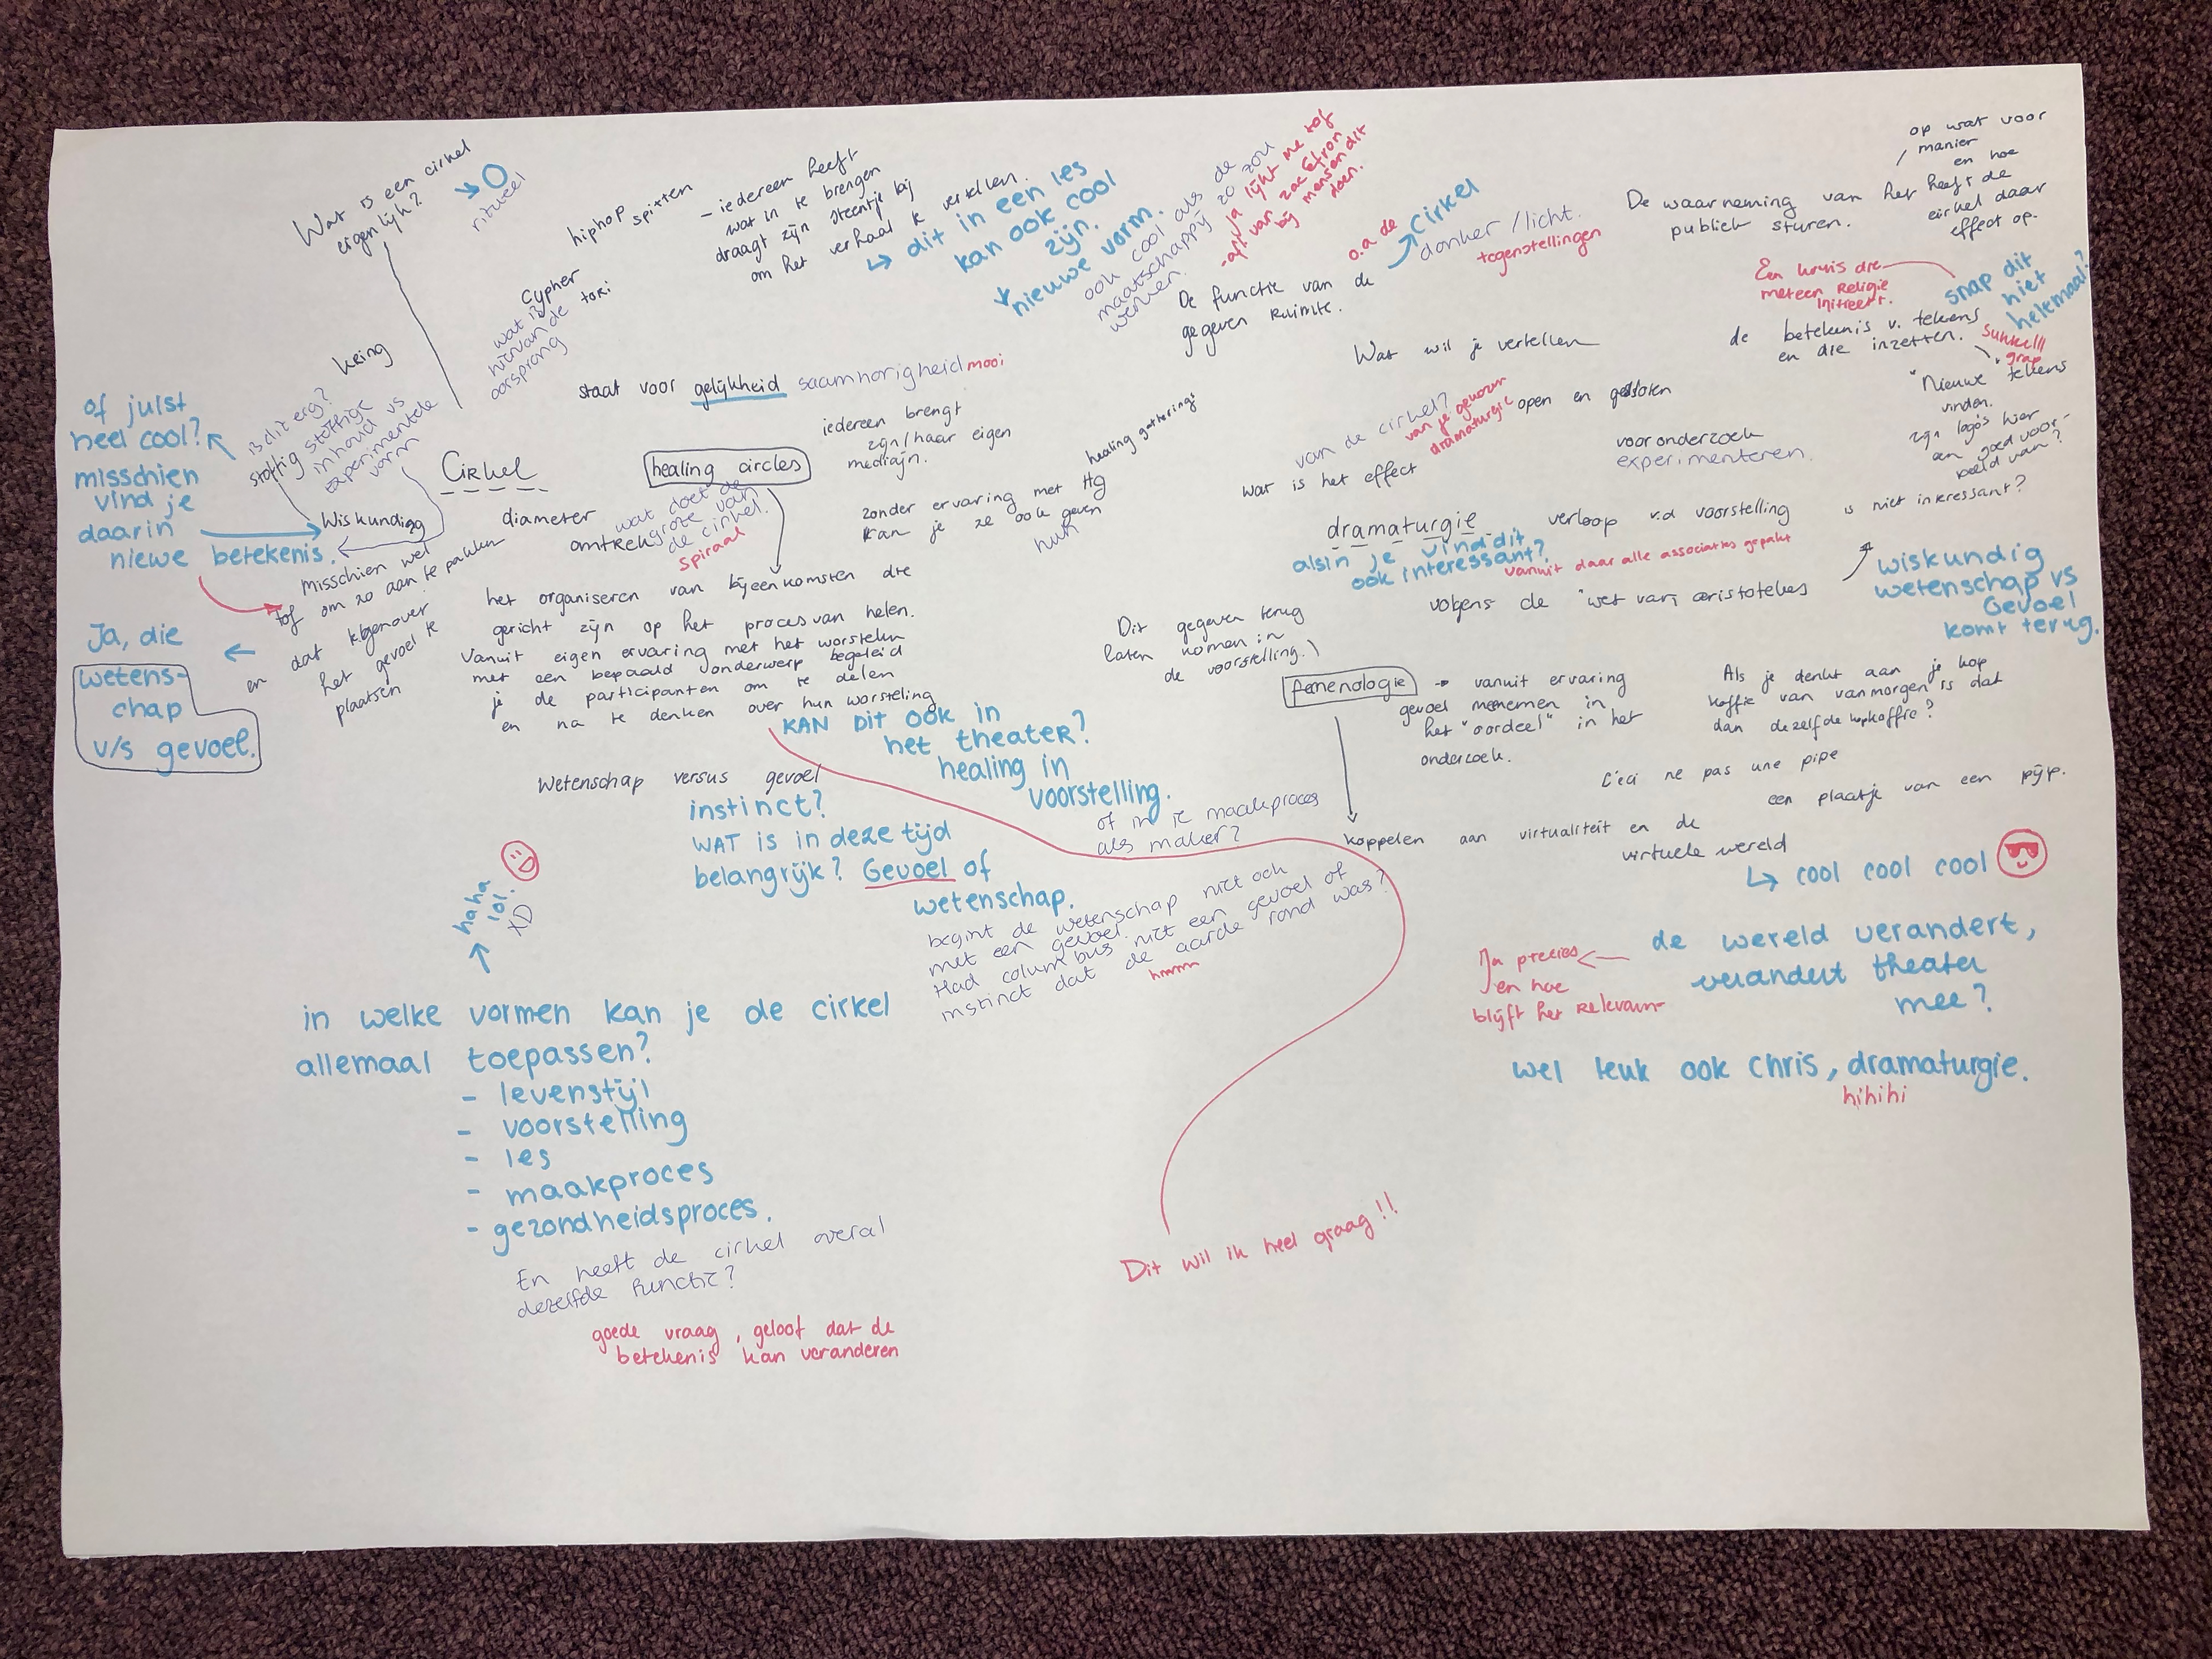 Wat is een cirkel
eigenlijk?
ritueel
hiphop spitten
Cypher
wat is
hiervan de tori
oorsprong
- iedereen heeft
wat in te brengen
draagt zijn steentje bij
om het verhaal te vertellen.
dit in een les
kan ook cool
zijn.
nieuwe vorm.
ook cool als de
maatschappij zo zou
werken.
Ja lijkt me tof
- off van zac Efron
bij mensen dit
doen.
kring
staat voor gelijkheid saamhorigheid mooi
of juist
heel cool?
misschien
vind je
daarin
niewe betekenis.
is dit erg?
stoffig stoffige
inhoud vs
experimentele
vorm
Cirkel
Wiskundig
diameter
omtrek
wat doet de
grote van
de cirkel.
spiraal
misschien wel
tof om zo aan te pakken
en dat tegenover
het gevoel te
plaatsen
Ja, die
wetens-
chap
v/s gevoel.
healing circles
iedereen brengt
zijn/haar eigen
medicijn.
healing gatherings
zonder ervaring met HG
kan je ze ook geven
huh
het organiseren van bijeenkomsten die
gericht zijn op het proces van helen.
Vanuit eigen ervaring met het worstelen
met een bepaald onderwerp begeleid
je de participanten om te delen
en na te denken over hun worsteling
KAN DIT OOK in
het theater?
healing in
voorstelling.
of in je maakproces
als maker?
Wetenschap versus gevoel
instinct?
WAT is in deze tijd
belangrijk? Gevoel of
wetenschap.
begint de wetenschap niet ook
met een gevoel.
Had columbus niet een gevoel of
instinct dat de aarde rond was?
hmmm
haha
lol.
XD
in welke vormen kan je de cirkel
allemaal toepassen?
- levenstijl
- voorstelling
- les
- maakproces
- gezondheidsproces.
En heeft de cirkel overal
dezelfde functie?
goede vraag, geloof dat de
betekenis kan veranderen
Dit wil ik heel graag!!
o.a de
Cirkel
donker/licht.
tegenstellingen
De functie van de
gegeven Ruimte.
De waarneming van het
publiek sturen.
op wat voor
manier
en hoe
heeft de
cirkel daar
effect op.
Een kruis die
meteen Religie
initieert.
snap dit
niet
helemaal?
de betekenis v. tekens
en die inzetten.
Sukkel!!!
grap
"Nieuwe" tekens
vinden.
zijn logo's hier
een goed voor-
beeld van?
Wat wil je vertellen
van de cirkel?
van je gekozen
dramaturgie
wat is het effect
open en gesloten
vooronderzoek
experimenteren.
dramaturgie
verloop v.d voorstelling
is niet interessant?
alsin je vind dit
ook interessant?
vanuit daar alle associaties gepakt
volgens de "wet van" aristoteles
wiskundig
wetenschap vs
Gevoel
komt terug.
Dit gegeven terug
laten komen in
de voorstelling.
femenologie
vanuit ervaring
gevoel meenemen in
het "oordeel" in het
onderzoek.
Als je denkt aan je kop
koffie van vanmorgen is dat
dan dezelfde kop koffie?
C'eci ne pas une pipe
een plaatje van een pijp.
koppelen aan virtualiteit en de
virtuele wereld
cool cool cool
de wereld verandert,
verandert theater
mee?
Ja precies
en hoe
blijft het Relevant
wel leuk ook chris, dramaturgie.
hihihi